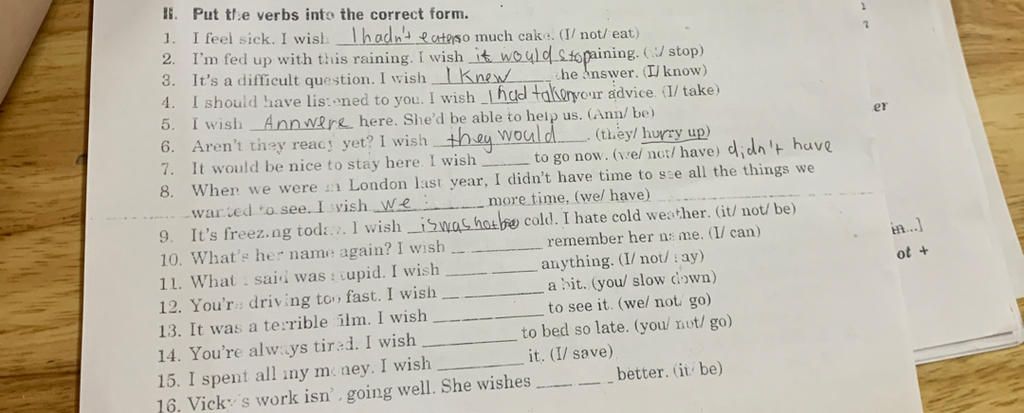 II. Put the verbs into the correct form.
1. I feel sick. I wish I hadn't eaten so much cake. (I/ not/ eat)
2. I'm fed up with this raining. I wish it would stop raining. (it/ stop)
3. It's a difficult question. I wish I knew the answer. (I/ know)
4. I should have listened to you. I wish I had taken your advice. (I/ take)
5. I wish Ann were here. She'd be able to help us. (Ann/ be)
6. Aren't they ready yet? I wish they would . (they/ hurry up)
7. It would be nice to stay here. I wish ______ to go now. (we/ not/ have) didn't have
8. When we were in London last year, I didn't have time to see all the things we
wanted to see. I wish we ______ more time, (we/ have)
9. It's freezing today. I wish cold. I hate cold weather. (it/ not/ be)
10. What's her name again? I wish ______ remember her name. (I/ can)
11. What I said was stupid. I wish ______ anything. (I/ not/ say)
12. You're driving too fast. I wish ______ a bit. (you/ slow down)
13. It was a terrible film. I wish ______ to see it. (we/ not/ go)
14. You're always tired. I wish ______ to bed so late. (you/ not/ go)
15. I spent all my money. I wish ______ it. (I/ save)
16. Vicky's work isn't going well. She wishes ______ better. (it/ be)
er
in...]
ot +